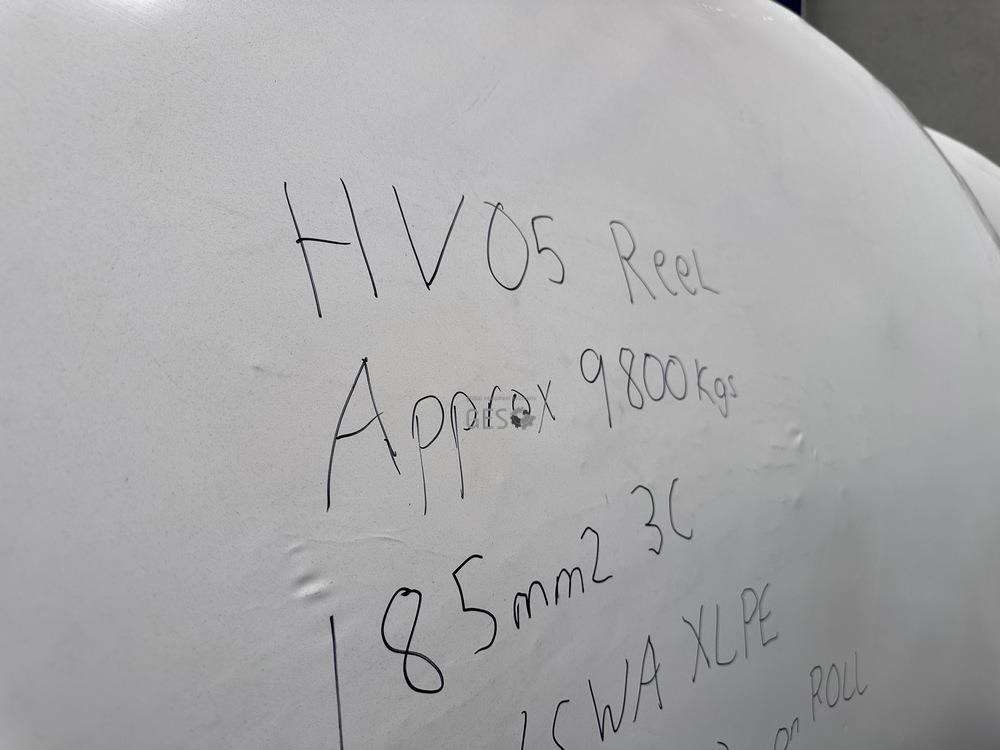 HV05 Reel
Approx 9800Kgs
GES
185mm2 3C
SWA XLPE
on ROLL